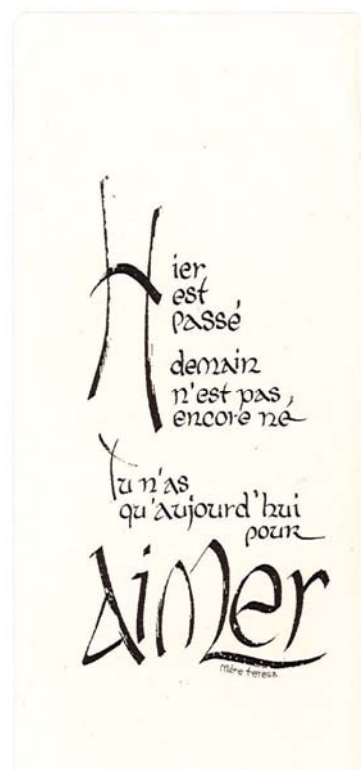 Hier
est
passé
demain
n'est pas
encore né
Tu n'as
qu'aujourd'hui
pour
Aimer
mère teresa